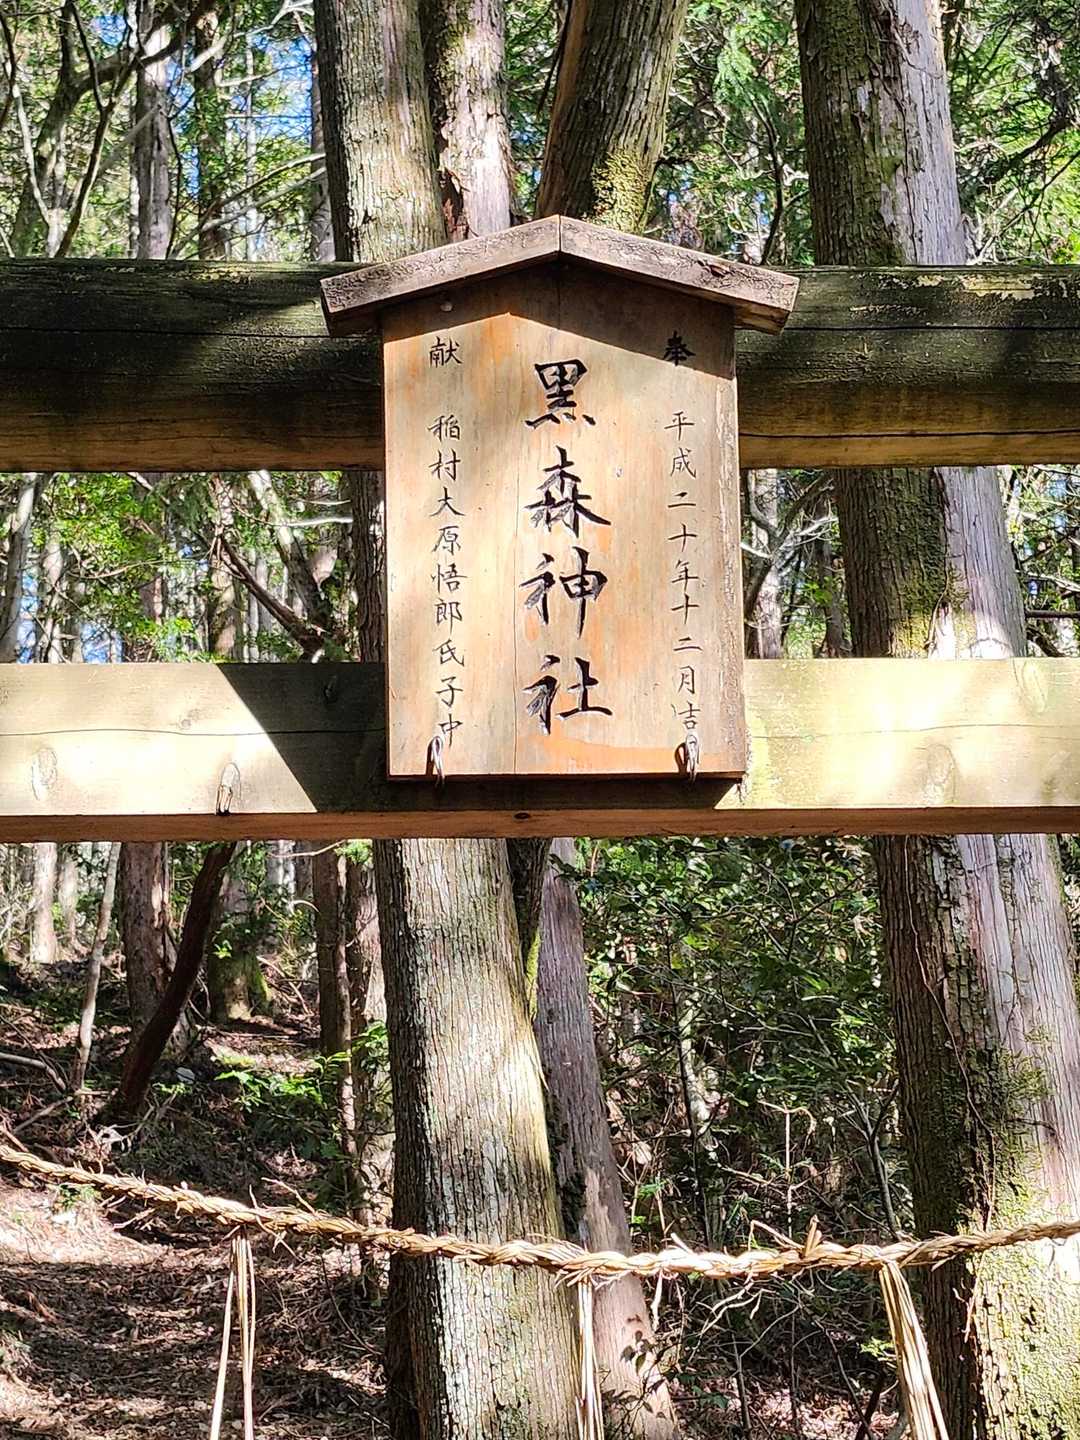 奉 平成二十年十二月吉
黒森神社
献 稲村大原悟郎氏子中